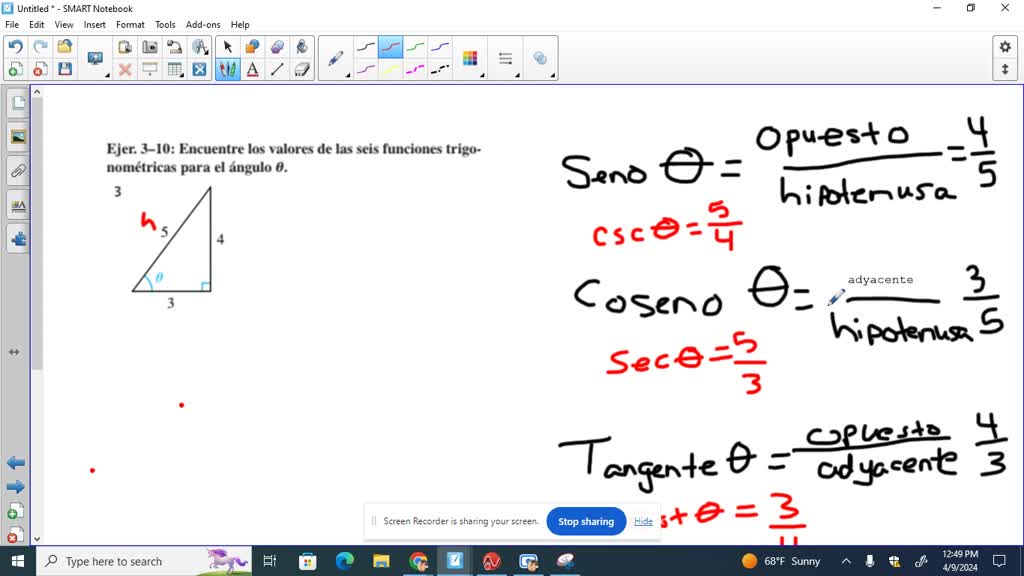 Untitled * - SMART Notebook
File Edit View Insert Format Tools Add-ons Help
Ejer. 3–10: Encuentre los valores de las seis funciones trigo-
nométricas para el ángulo θ.
3
h
5
4
θ
3
Seno θ = opuesto / hipotenusa = 4/5
csc θ = 5/4
Coseno θ = adyacente / hipotenusa 3/5
Sec θ = 5/3
Tangente θ = opuesto / adyacente 4/3
θ = 3
Screen Recorder is sharing your screen. Stop sharing Hide
Type here to search
68°F Sunny
12:49 PM
4/9/2024